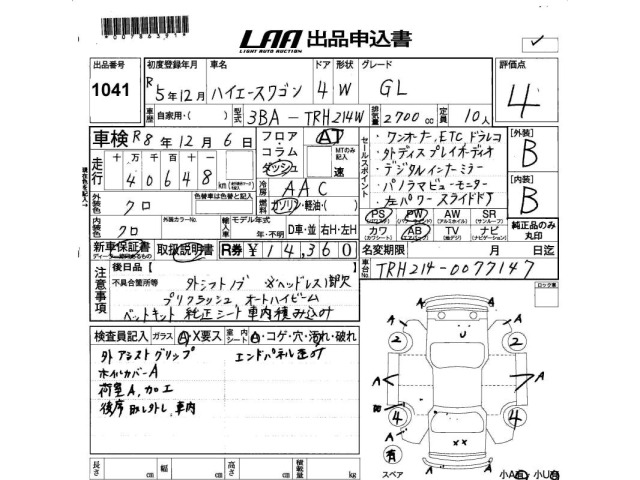 LAA 出品申込書
LIGHT AUTO AUCTION
出品番号 初度登録年月 車名 ドア 形状 グレード 評価点
1041 R5年12月 ハイエースワゴン 4 W GL 4
車歴 自家用・( ) 型式 3BA-TRH214W 排気量 2700cc 定員 10人
車検 R8年12月6日 フロア コラム ダッシュ AT MTのみ記入 速
セールスポイント
・ワンオーナー、ETC ドラレコ
・外ディスプレイオーディオ
・デジタルインナーミラー
・パノラマビューモニター
・左パワースライドD
[外装] B
[内装] B
走行 十万 万 千 百 十 一
40648 km
冷房 AAC
外装色 クロ 色替車は色替と記入 燃料 ガソリン・軽油・( )
内装色 クロ 外装カラーNo. 輸入車 モデル年式 年・不明 D車・並 右H・左H
PS PW AW SR
カワ AB TV ナビ
純正品のみ丸印
新車保証書 取扱説明書 R券 ¥14,360
名変期限 月 日迄
注意事項 後日品( )
不具合箇所等 外シフトノブ
プリクラッシュ オートハイビーム
ベットキット 純正シート車内積み込み
車台No. TRH214-0077147
ロック番
検査員記入 ガラス A・X要ス 室内シート A・コゲ・穴・汚れ・破れ
外アシストグリップ エンドパネル
ホイルカバーA
荷室A,加工
後席取り外し,車内
U
2 2
A A
A
4 4
A A
xx
有
A A
スペア 小A有 小U有
長さ cm 幅 cm 高さ cm 積載量 kg